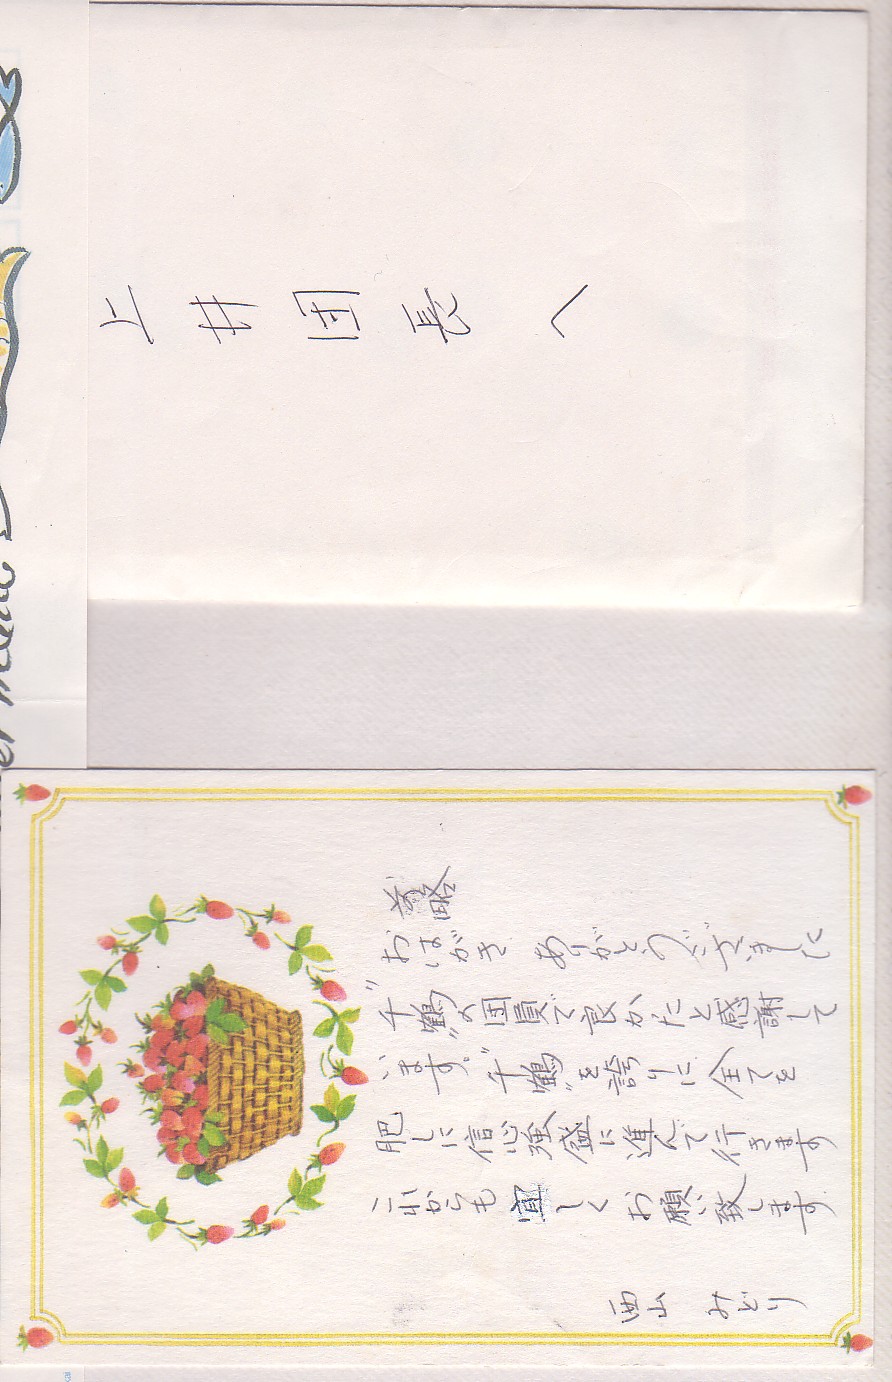 上井団長へ
前略
おはがき ありがとうございました
"千鶴"の団員で良かったと感謝して
います。"千鶴"を誇りに 全てを
肥しに信心強盛に進んで行きます
これからも宜しくお願い致します
西山 みどり